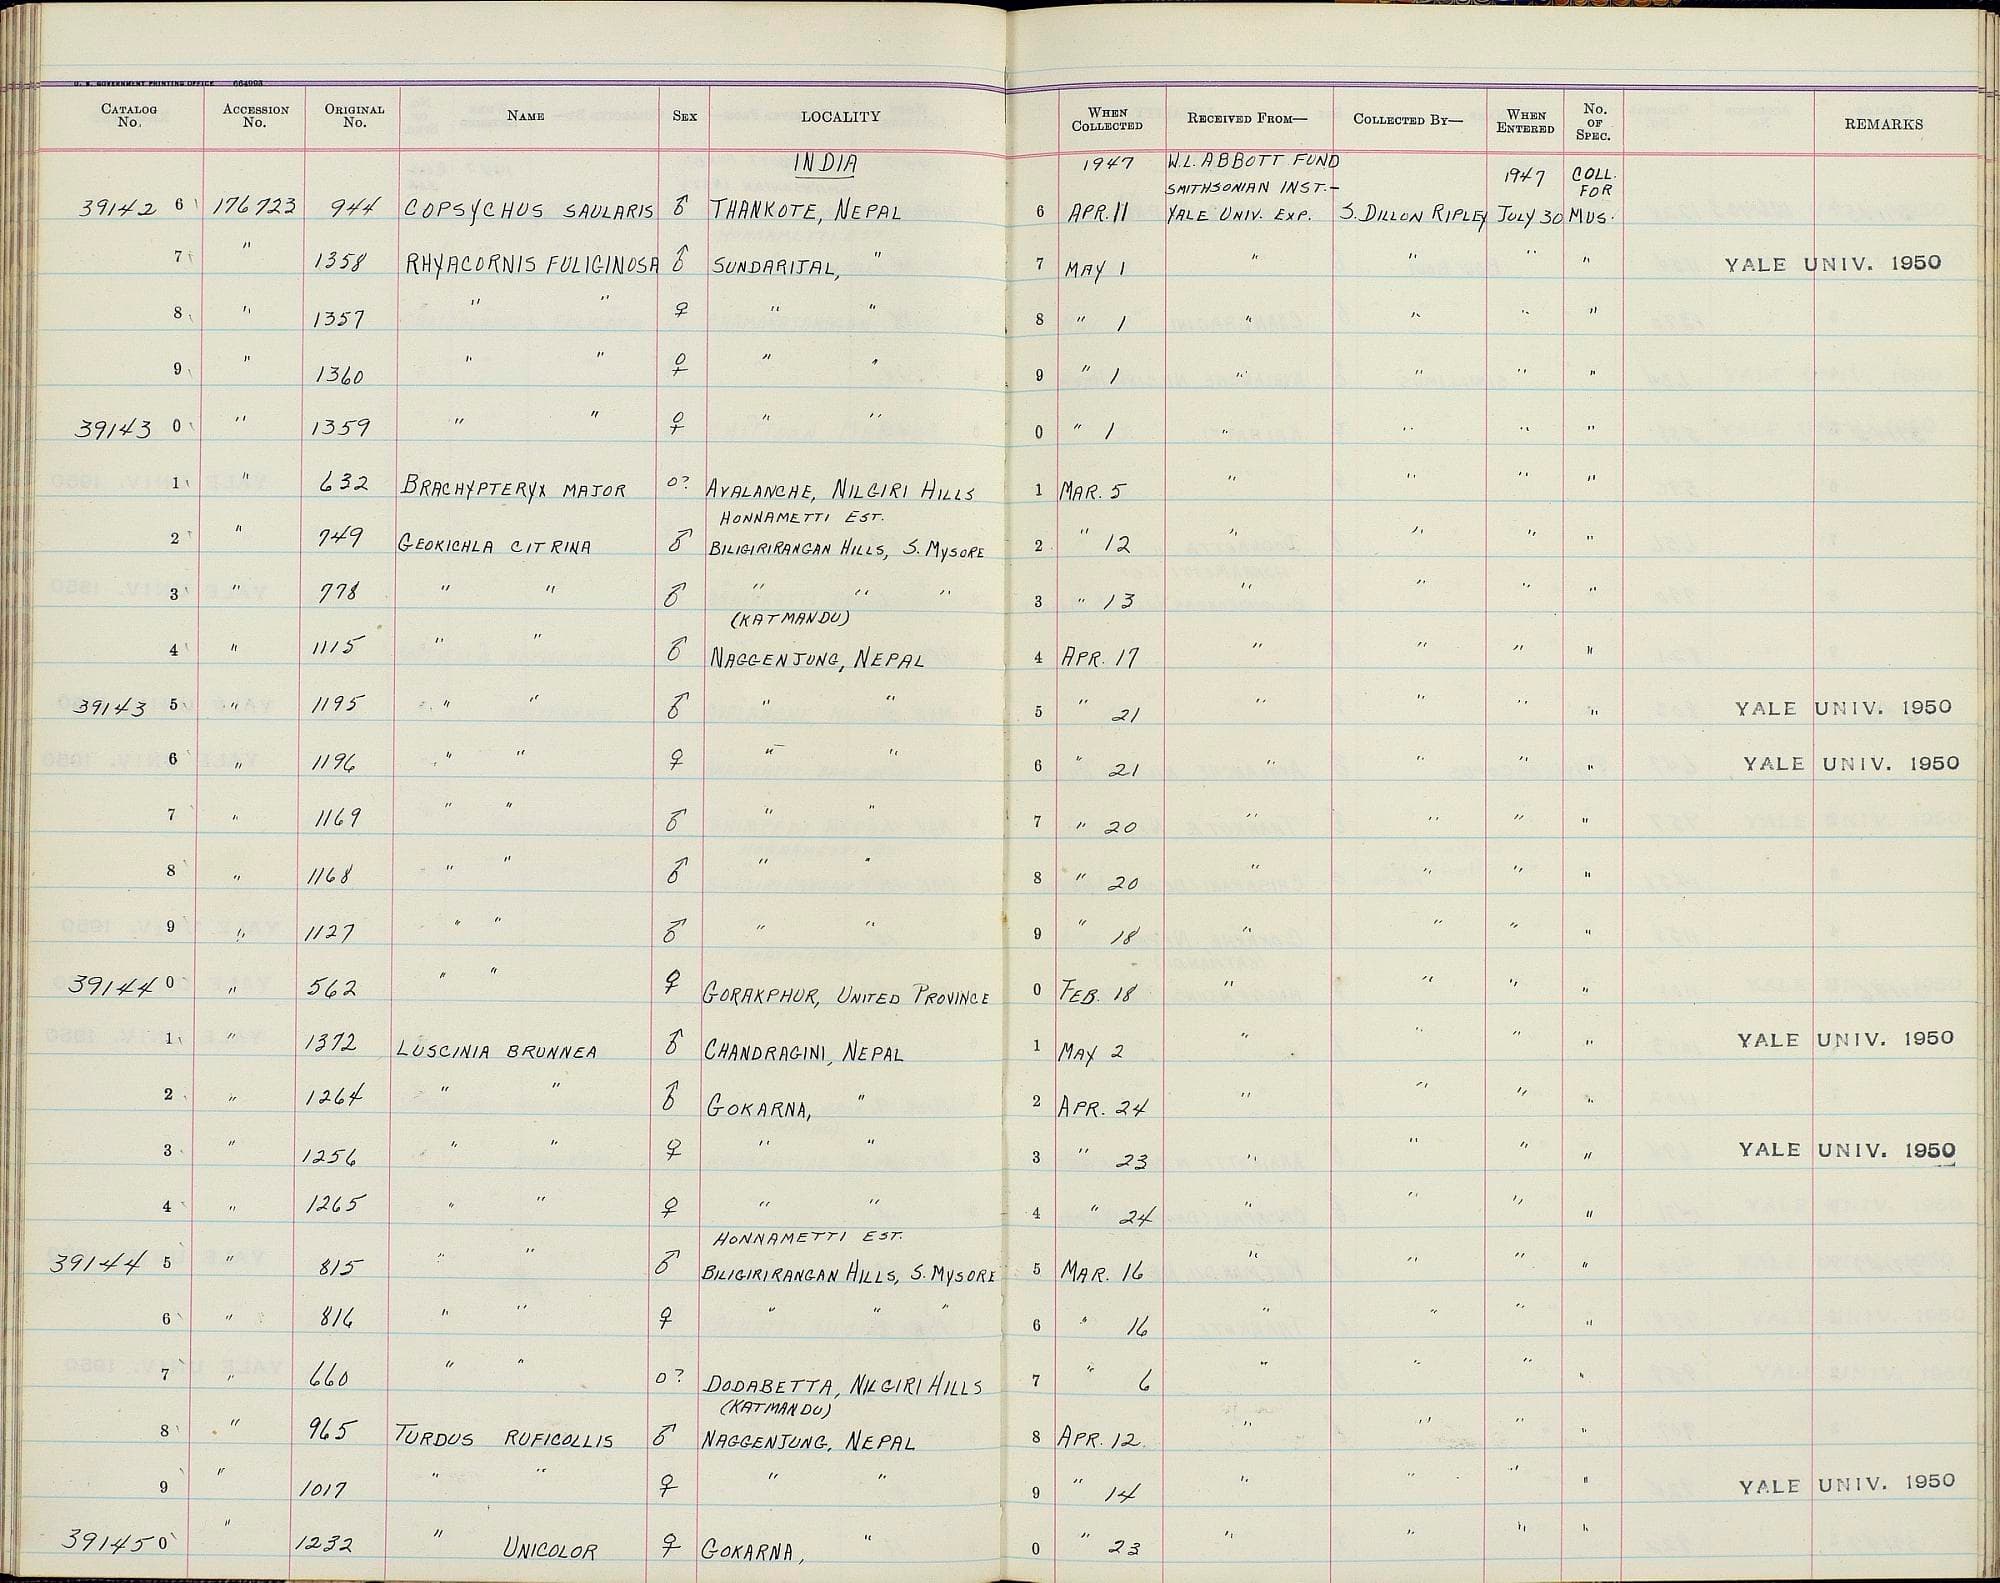 U. S. GOVERNMENT PRINTING OFFICE 664993
CATALOG No. ACCESSION No. ORIGINAL No. NAME SEX LOCALITY WHEN COLLECTED RECEIVED FROM— COLLECTED BY— WHEN ENTERED No. OF SPEC. REMARKS
INDIA 1947 W.L. ABBOTT FUND 1947 COLL.
SMITHSONIAN INST.- FOR
39142 6 176723 944 COPSYCHUS SAULARIS ♂ THANKOTE, NEPAL 6 APR. 11 YALE UNIV. EXP. S. DILLON RIPLEY JULY 30 MUS.
7 " 1358 RHYACORNIS FULIGINOSA ♂ SUNDARIJAL, " 7 MAY 1 " " " " YALE UNIV. 1950
8 " 1357 " " ♀ " " 8 " 1 " " " "
9 " 1360 " " ♀ " " 9 " 1 " " " "
39143 0 " 1359 " " ♀ " " 0 " 1 " " " "
1 " 632 BRACHYPTERYX MAJOR o? AVALANCHE, NILGIRI HILLS 1 MAR. 5 " " " "
HONNAMETTI EST.
2 " 749 GEOKICHLA CITRINA ♂ BILIGIRIRANGAN HILLS, S. MYSORE 2 " 12 " " " "
3 " 778 " " ♂ " " " 3 " 13 " " " "
(KATMANDU)
4 " 1115 " " ♂ NAGGENJUNG, NEPAL 4 APR. 17 " " " "
39143 5 " 1195 " " ♂ " " 5 " 21 " " " " YALE UNIV. 1950
6 " 1196 " " ♀ " " 6 " 21 " " " " YALE UNIV. 1950
7 " 1169 " " ♂ " " 7 " 20 " " " "
8 " 1168 " " ♂ " " 8 " 20 " " " "
9 " 1127 " " ♂ " " 9 " 18 " " " "
39144 0 " 562 " " ♀ GORAKPHUR, UNITED PROVINCE 0 FEB. 18 " " " "
1 " 1372 LUSCINIA BRUNNEA ♂ CHANDRAGINI, NEPAL 1 MAY 2 " " " " YALE UNIV. 1950
2 " 1264 " " ♂ GOKARNA, " 2 APR. 24 " " " "
3 " 1256 " " ♀ " " 3 " 23 " " " " YALE UNIV. 1950
4 " 1265 " " ♀ " " 4 " 24 " " " "
HONNAMETTI EST.
39144 5 " 815 " " ♂ BILIGIRIRANGAN HILLS, S. MYSORE 5 MAR. 16 " " " "
6 " 816 " " ♀ " " " 6 " 16 " " " "
7 " 660 " " o? DODABETTA, NILGIRI HILLS 7 " 6 " " " "
(KATMANDU)
8 " 965 TURDUS RUFICOLLIS ♂ NAGGENJUNG, NEPAL 8 APR. 12 " " " "
9 " 1017 " " ♀ " " 9 " 14 " " " " YALE UNIV. 1950
39145 0 " 1232 " UNICOLOR ♀ GOKARNA, " 0 " 23 " " " "